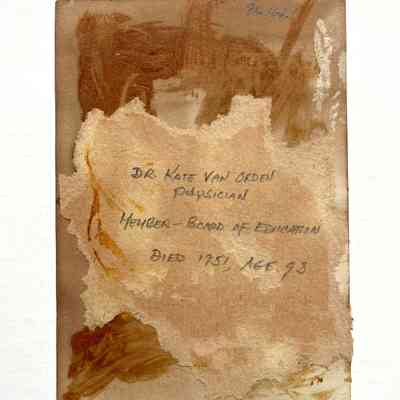 DR. KATE VAN ORDEN
PHYSICIAN
MEMBER - BOARD OF EDUCATION
DIED 1951, AGE 93